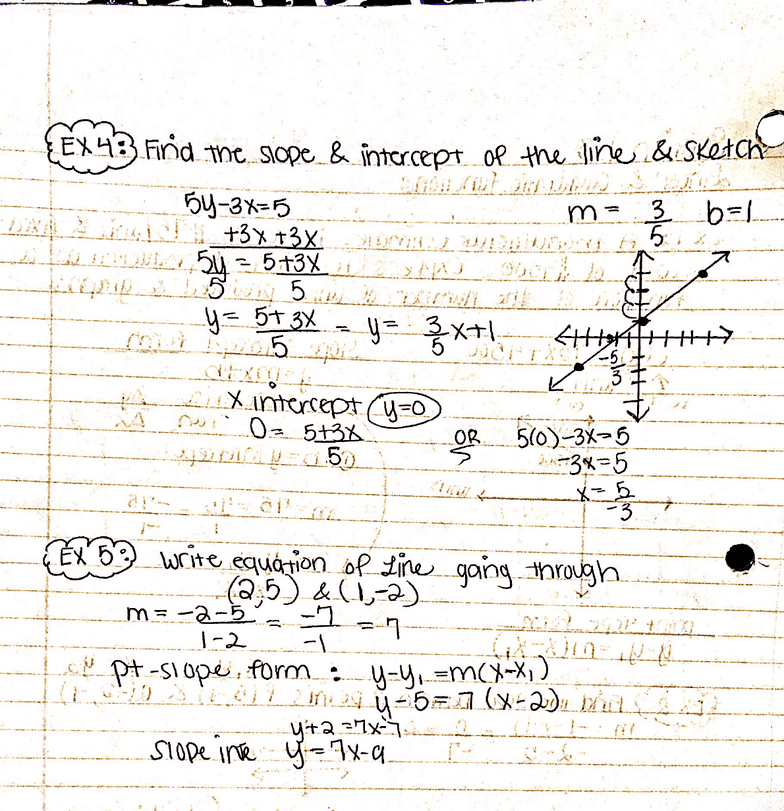 EX 4: Find the slope & intercept of the line & sketch
5y-3x=5
m = 3/5 b=1
+3x +3x
5y/5 = 5+3x/5
y = 5+3x/5 = y = 3/5x+1
-5/3
x intercept y=0
0 = 5+3x/5
OR 5(0)-3x=5
-3x=5
x = 5/-3
EX 5: write equation of line going through
(2,5) & (1,-2)
m = -2-5/1-2 = -7/-1 = 7
pt-slope form : y-y₁=m(x-x₁)
y-5=7(x-2)
y+2=7x-7
slope inte y=7x-9